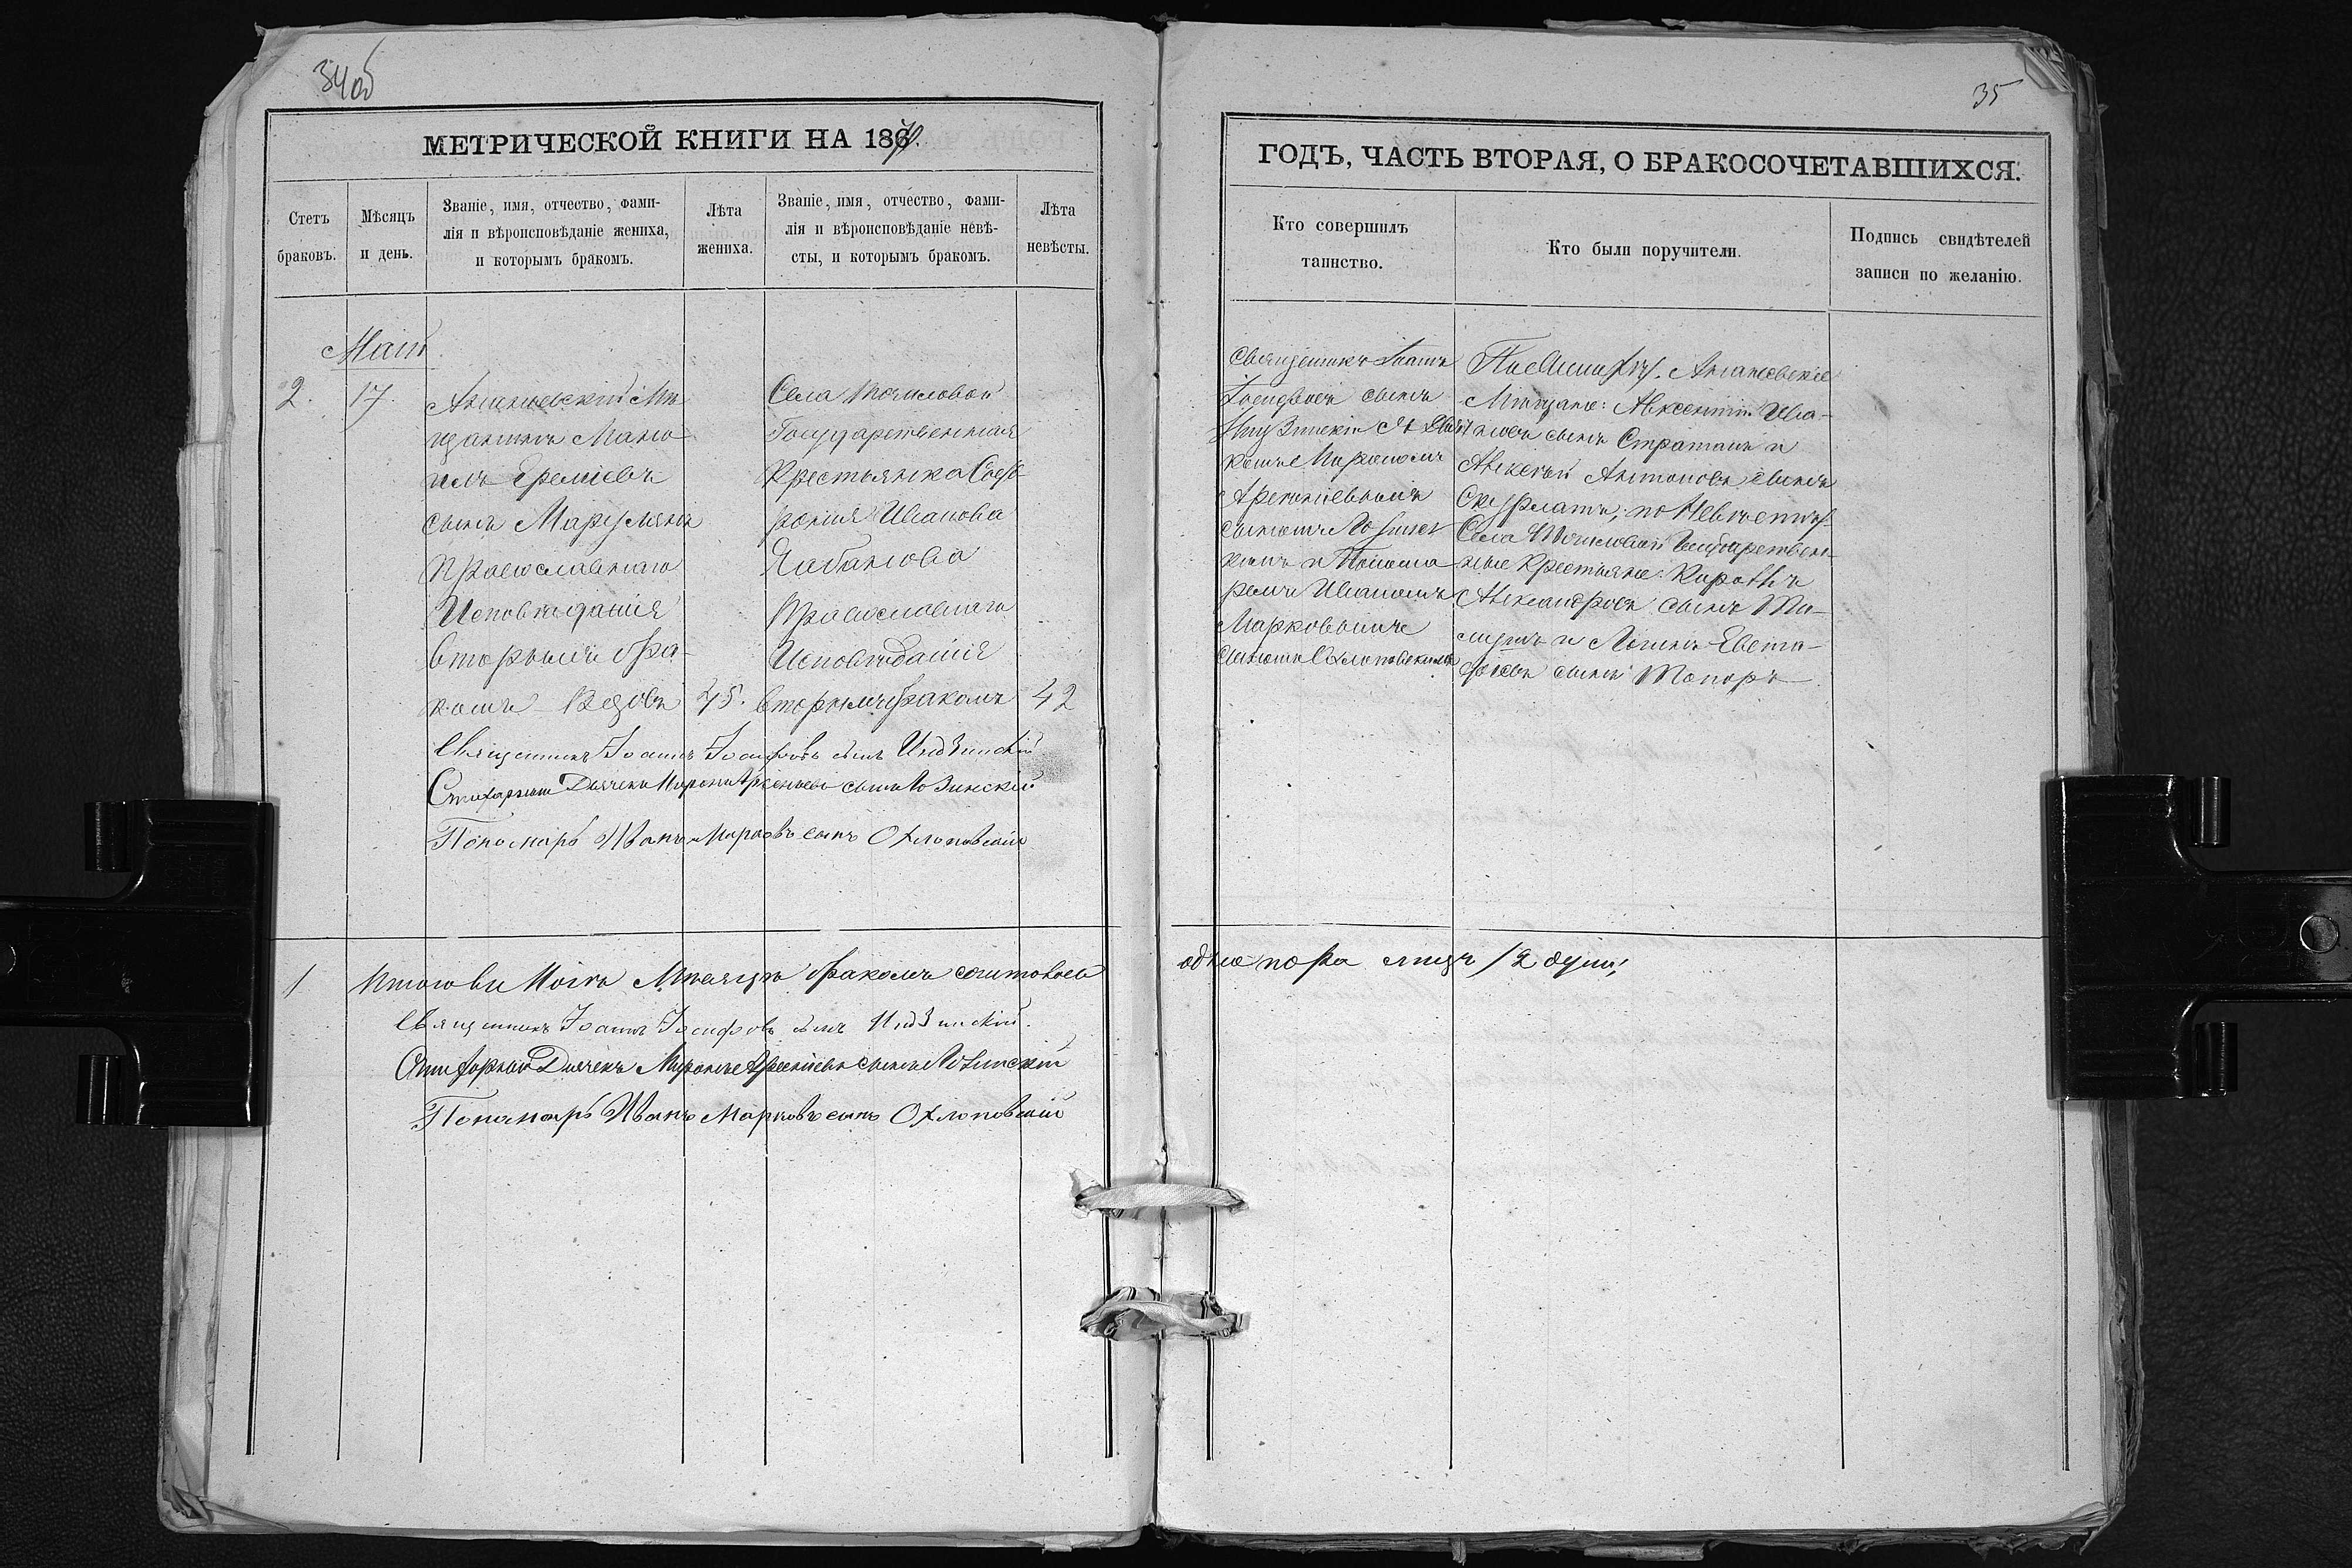 34об
МЕТРИЧЕСКОЙ КНИГИ НА 1870.
Счетъ браковъ.
Мѣсяцъ и день.
Званіе, имя, отчество, фами-
лія и вѣроисповѣданіе жениха,
и которымъ бракомъ.
Лѣта
жениха.
Званіе, имя, отчество, фами-
лія и вѣроисповѣданіе невѣ-
сты, и которымъ бракомъ.
Лѣта
невѣсты.
Маій
2. 17.
Ананьевскій Мѣ
щанинъ Мано
илъ Еремѣевъ
сынъ
Православнаго
Исповѣданія
вторымъ бра-
комъ Вдовъ 45.
Села Точиловой
Государственная
Крестьянка Софро
нія Иванова
Чабанова
Православнаго
Исповѣданія
вторымъ бракомъ 42
Священникъ Іоаннъ Іосифовъ сынъ
Стихарный Дьячекъ Миронъ Арсеніевъ сынъ Лозинскій
Пономарь Иванъ Марковъ сынъ Охлоповскій
1 Итого въ Маіѣ Мѣсяцѣ бракомъ сочитовось
Священникъ Іоаннъ Іосифовъ сынъ
Стихарный Дьячекъ Миронъ Арсеніевъ сынъ Лозинскій
Пономарь Иванъ Марковъ сынъ Охлоповскій
35
ГОДЪ, ЧАСТЬ ВТОРАЯ, О БРАКОСОЧЕТАВШИХСЯ.
Кто совершилъ
таинство.
Кто были поручители.
Подпись свидѣтелей
записи по желанію.
Священникъ Іоаннъ
Іосифовъ сынъ
Мирономъ
Арсеніевымъ
сыномъ Лозинск
имъ и Понома
ремъ Иваномъ
Марковымъ
сыномъ Охлоповскимъ
По Женихѣ. Ананьевскіе
Мѣщане: Авксентій Ива-
новъ сынъ Стратанъ и
Алексѣй Антоновъ сынъ
по Невѣстѣ
Села Точиловой Государствен-
ные Крестьяне:
Александровъ сынъ
и Евста-
фіевъ сынъ Топоръ
одна пара лицъ /2 души/